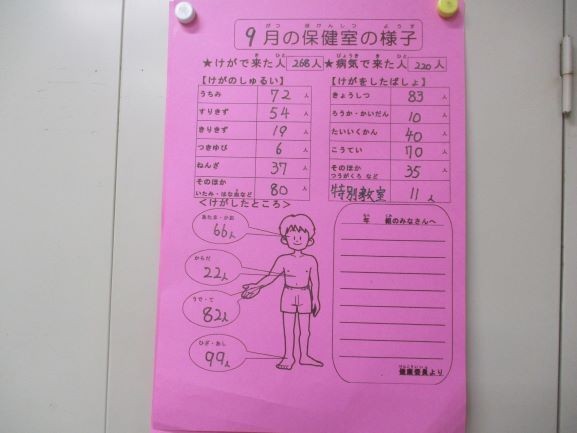 9月の保健室の様子
★けがで来た人 268人 ★病気で来た人 220人
【けがのしゅるい】
うちみ 72人
すりきず 54人
きりきず 19人
つきゆび 6人
ねんざ 37人
そのほか いたみ・はなぢなど 80人
【けがをしたばしょ】
きょうしつ 83人
ろうか・かいだん 10人
たいいくかん 40人
こうてい 70人
そのほか つうがくろ など 35人
特別教室 11人
<けがしたところ>
あたま・かお
66人
からだ
22人
うで・て
82人
ひざ・あし
99人
年 組のみなさんへ
健康委員より